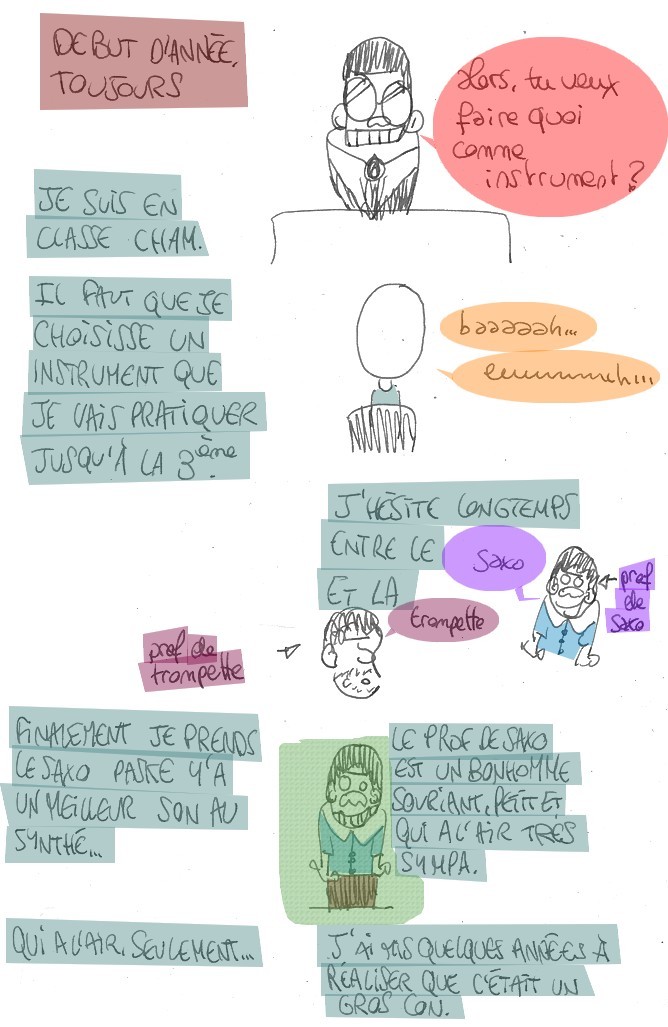 DEBUT D'ANNÉE,
TOUJOURS
Alors, tu veux
faire quoi
comme
instrument ?
JE SUIS EN
CLASSE CHAM.
IL FAUT QUE JE
CHOISISSE UN
INSTRUMENT QUE
JE VAIS PRATIQUER
JUSQU'À LA 3ème.
baaaaah...
eeuuuuuuh...
J'HÉSITE LONGTEMPS
ENTRE LE
saxo
ET LA
trompette
prof
de
saxo
prof de
trompette
FINALEMENT JE PRENDS
LE SAXO PASKE Y'A
UN MEILLEUR SON AU
SYNTHÉ...
LE PROF DE SAXO
EST UN BONHOMME
SOURIANT, PETIT ET
QUI A L'AIR TRÈS
SYMPA.
QUI A L'AIR, SEULEMENT...
J'AI MIS QUELQUES ANNÉES À
RÉALISER QUE C'ÉTAIT UN
GROS CON.